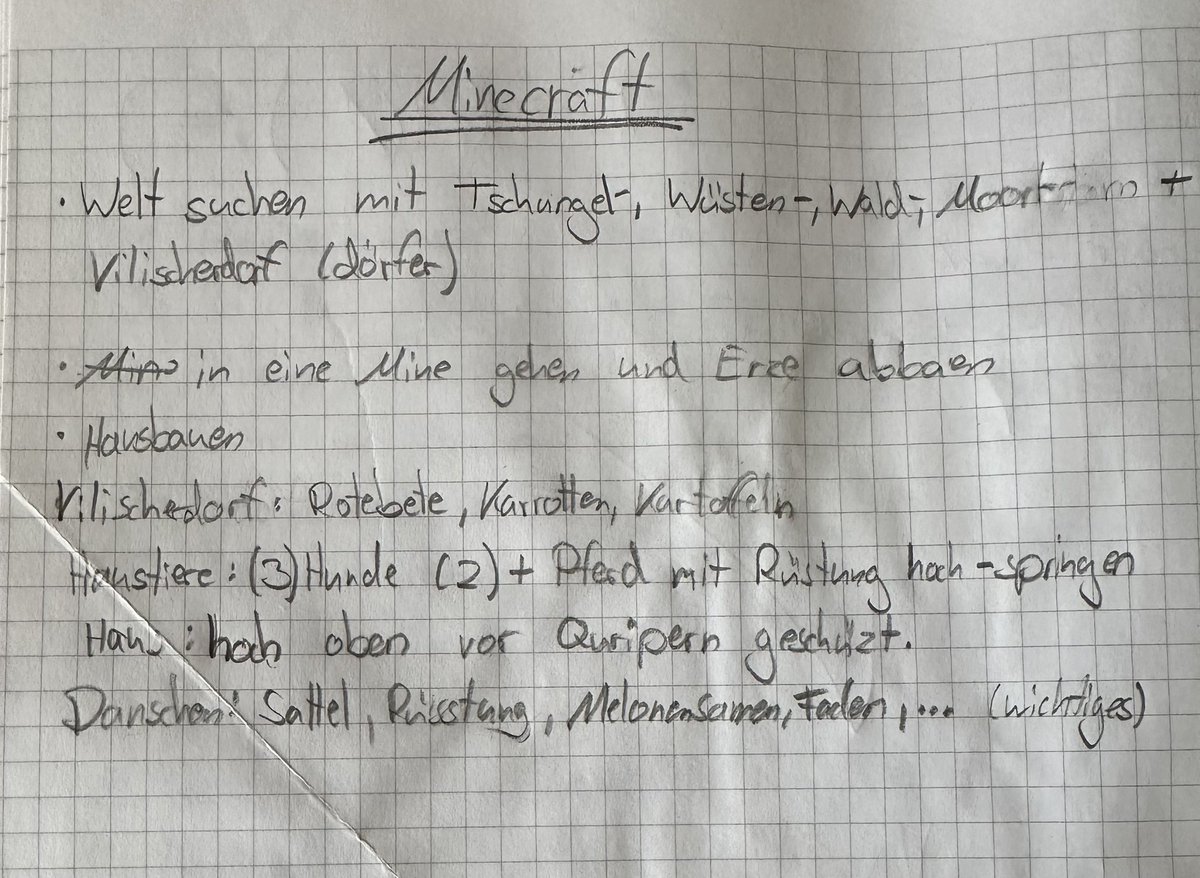 Minecraft
· Welt suchen mit Tschungel-, Wüsten-, Wald-, +
Vilischerdorf (dörfer)
· in eine Mine gehen und Erze abbaen
· Hausbauen
Vilischerdorf: Rotebete, Karrotten, Kartoffeln
Haustiere: (3) Hunde (2) + Pferd mit Rüstung hoch-springen
Haus: hoch oben vor Quripern geschüzt.
Danschen: Sattel, Rüsstung, Melonensamen, Faden, ... (wichtiges)